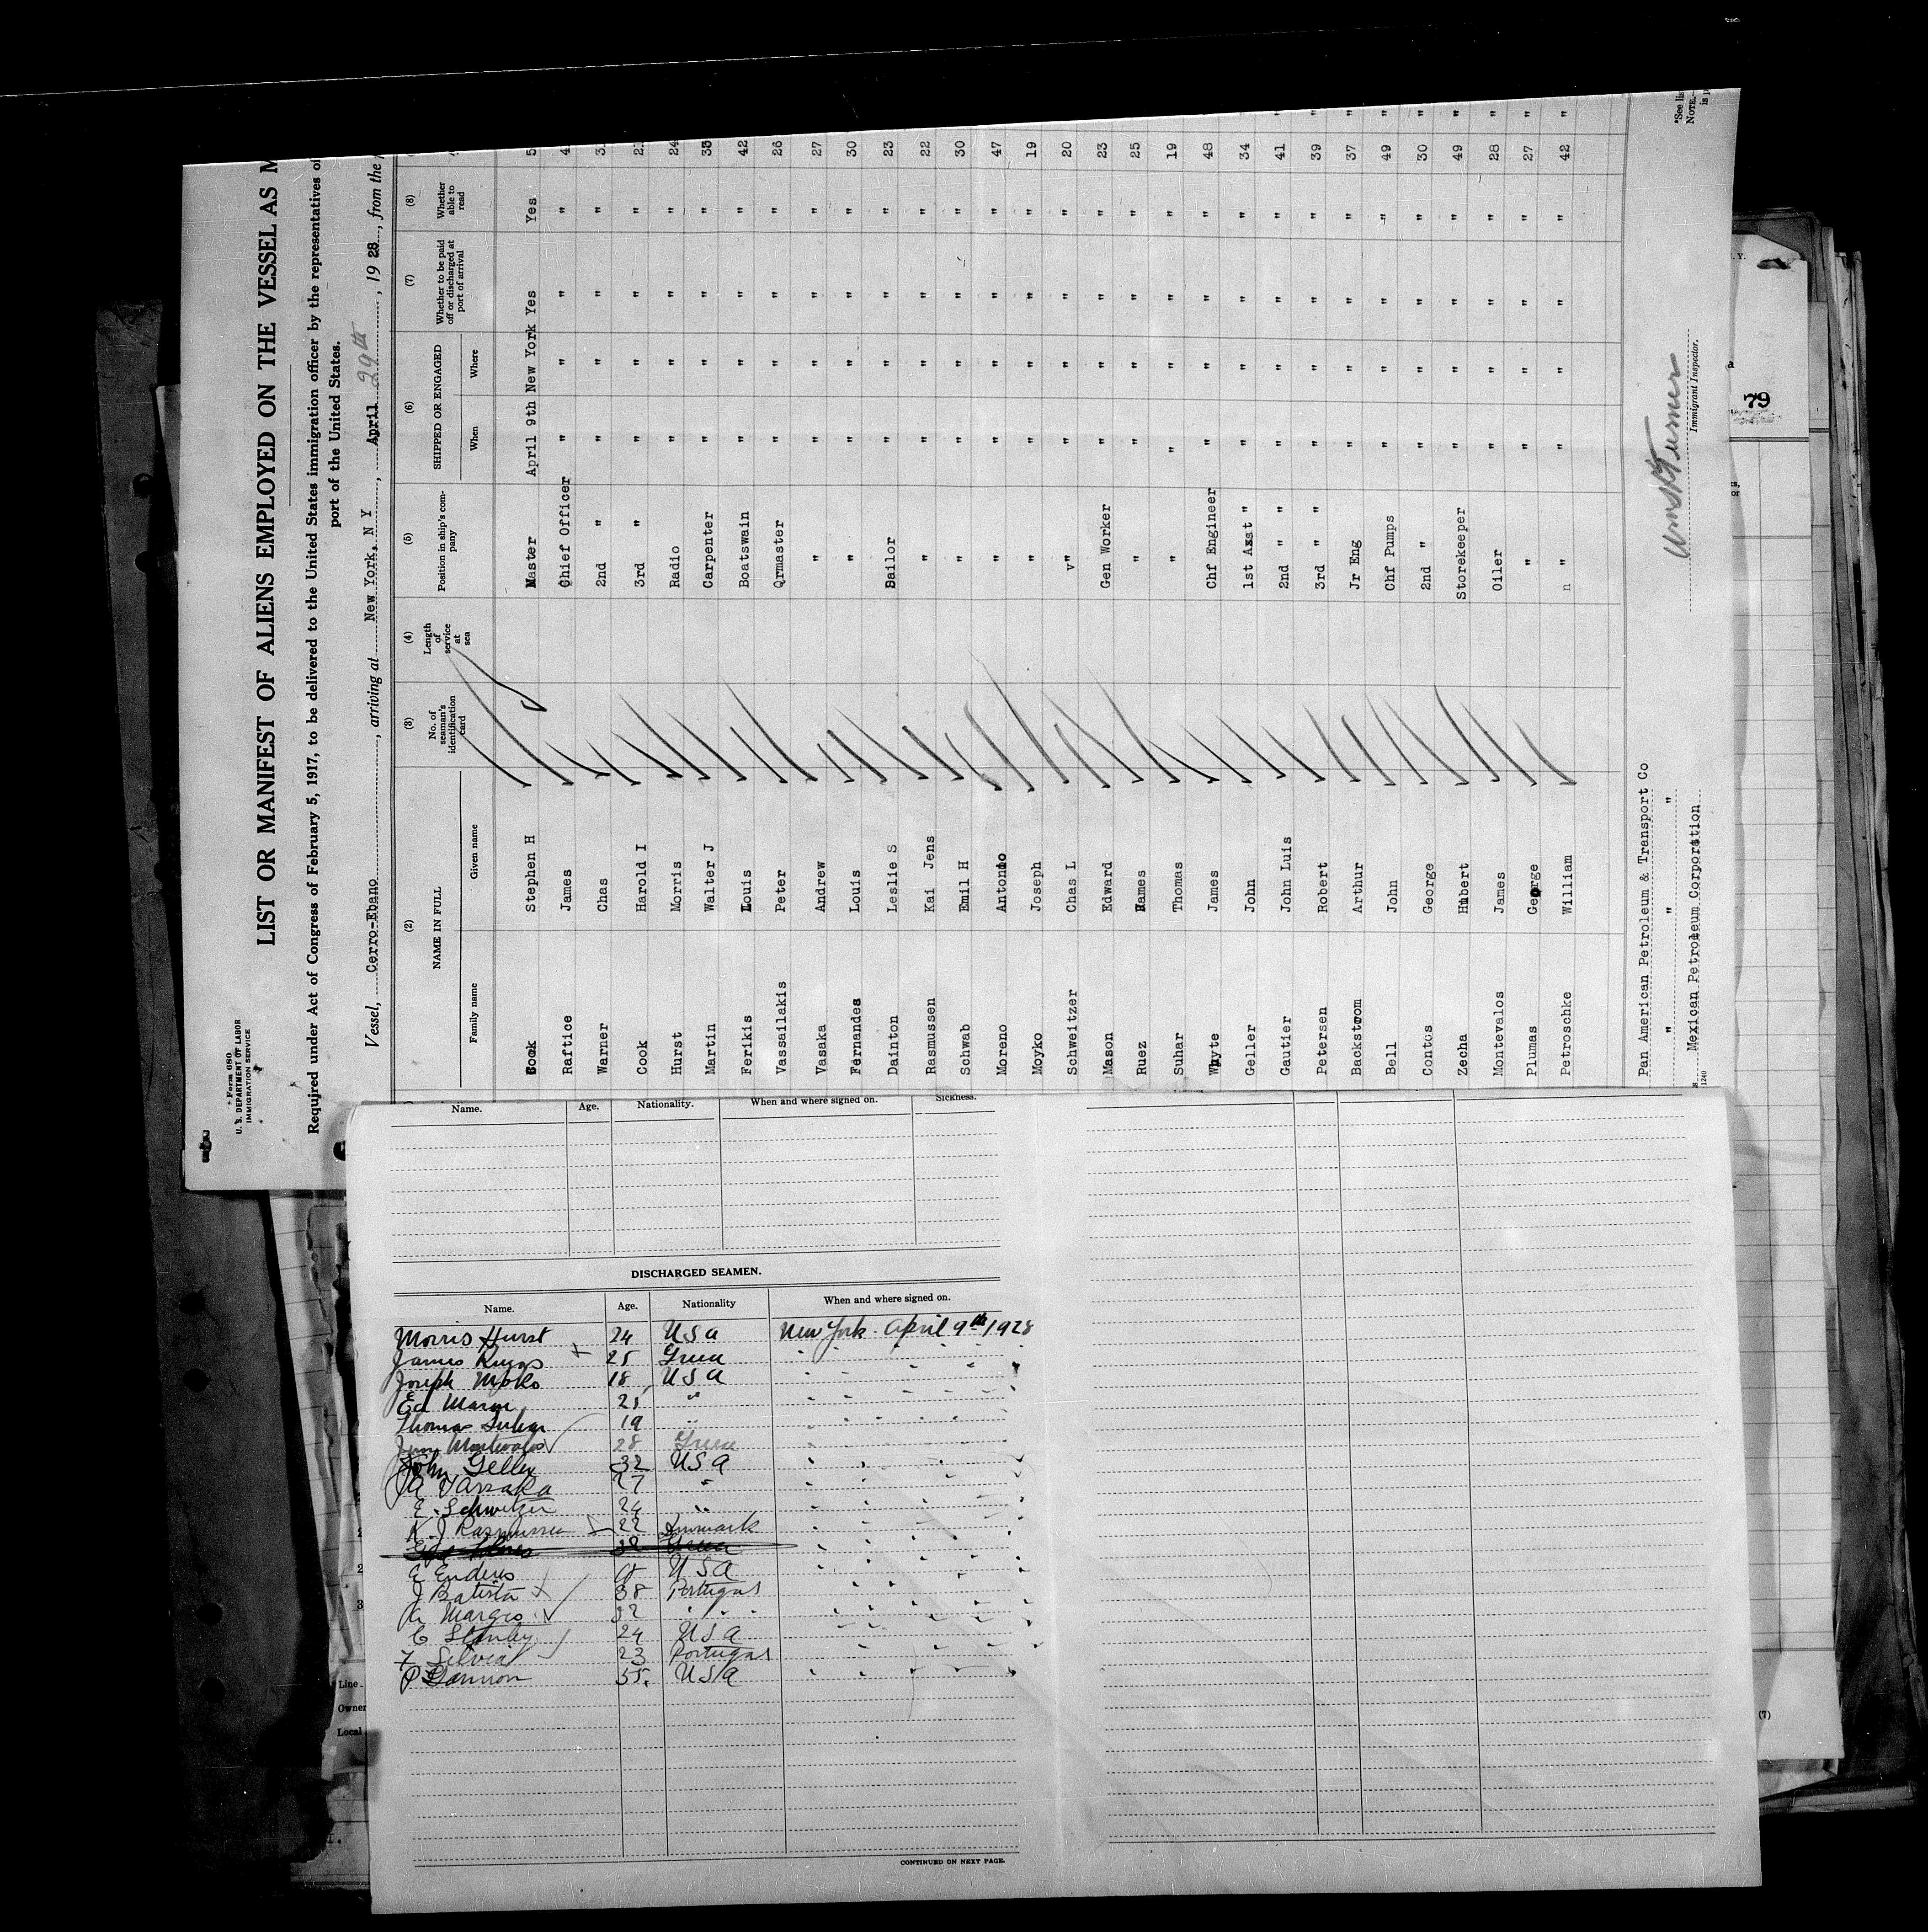 Form 680
U. S. DEPARTMENT OF LABOR
IMMIGRATION SERVICE
LIST OR MANIFEST OF ALIENS EMPLOYED ON THE VESSEL AS M
Required under Act of Congress of February 5, 1917, to be delivered to the United States immigration officer by the representatives of
port of the United States.
Vessel, Cerro-Ebano, arriving at New York, N Y, April 29th, 1928, from the
(2) (3) (4) (5) (6) (7) (8)
NAME IN FULL No. of seaman's identification card Length of service at sea Position in ship's company SHIPPED OR ENGAGED Whether to be paid off or discharged at port of arrival Whether able to read
Family name Given name When Where
Cook Stephen H Master April 9th New York Yes Yes 5
Raftice James Chief Officer " " " " 4
Warner Chas 2nd " " " " " 3
Cook Harold I 3rd " " " " " 21
Hurst Morris Radio " " " " 24
Martin Walter J Carpenter " " " " 33
Ferikis Louis Boatswain " " " " 42
Vassailakis Peter Qrmaster " " " " 26
Vasaka Andrew " " " " " 27
Fernandes Louis " " " " " 30
Dainton Leslie S Sailor " " " " 23
Rasmussen Kai Jens " " " " " 22
Schwab Emil H " " " " " 30
Moreno Antonio " " " " " 47
Moyko Joseph " " " " " 19
Schweitzer Chas L " " " " " 20
Mason Edward Gen Worker " " " " 23
Ruez James " " " " " 25
Suhar Thomas " " " " " 19
Whyte James Chf Engineer " " " " 48
Geller John 1st Asst " " " " " 34
Gautier John Luis 2nd " " " " " " 41
Petersen Robert 3rd " " " " " " 39
Backstrom Arthur Jr Eng " " " " 37
Bell John Chf Pumps " " " " 49
Contos George 2nd " " " " " 30
Zecha Hubert Storekeeper " " " " 49
Montevalos James Oiler " " " " 28
Plumas George " " " " " 27
Petroschke William " " " " " 42
Pan American Petroleum & Transport Co
" " "
Mexican Petroleum Corporation
Immigrant Inspector.
*See lis
NOTE.—
is p
79
Name. Age. Nationality. When and where signed on. Sickness.
DISCHARGED SEAMEN.
Name. Age. Nationality When and where signed on.
Morris Hurst 24 USA New York April 9th 1928
James 25 Greece
Joseph Moko 18 USA
Ed Mason 21 "
Thomas Suhar 19
Jim Montevalos 28 Greece
John Geller 32 USA
A Vassaka 27 "
E. Schwitzer 24 "
K. J Rasmussen 22 Denmark
E Enders USA
J Batista 38 Portugal
A Marges 32 " "
C Stanley 24 USA
F Silveia 23 Portugal
P Gannon 55. USA
CONTINUED ON NEXT PAGE.
Line
Owner
Local
(7)